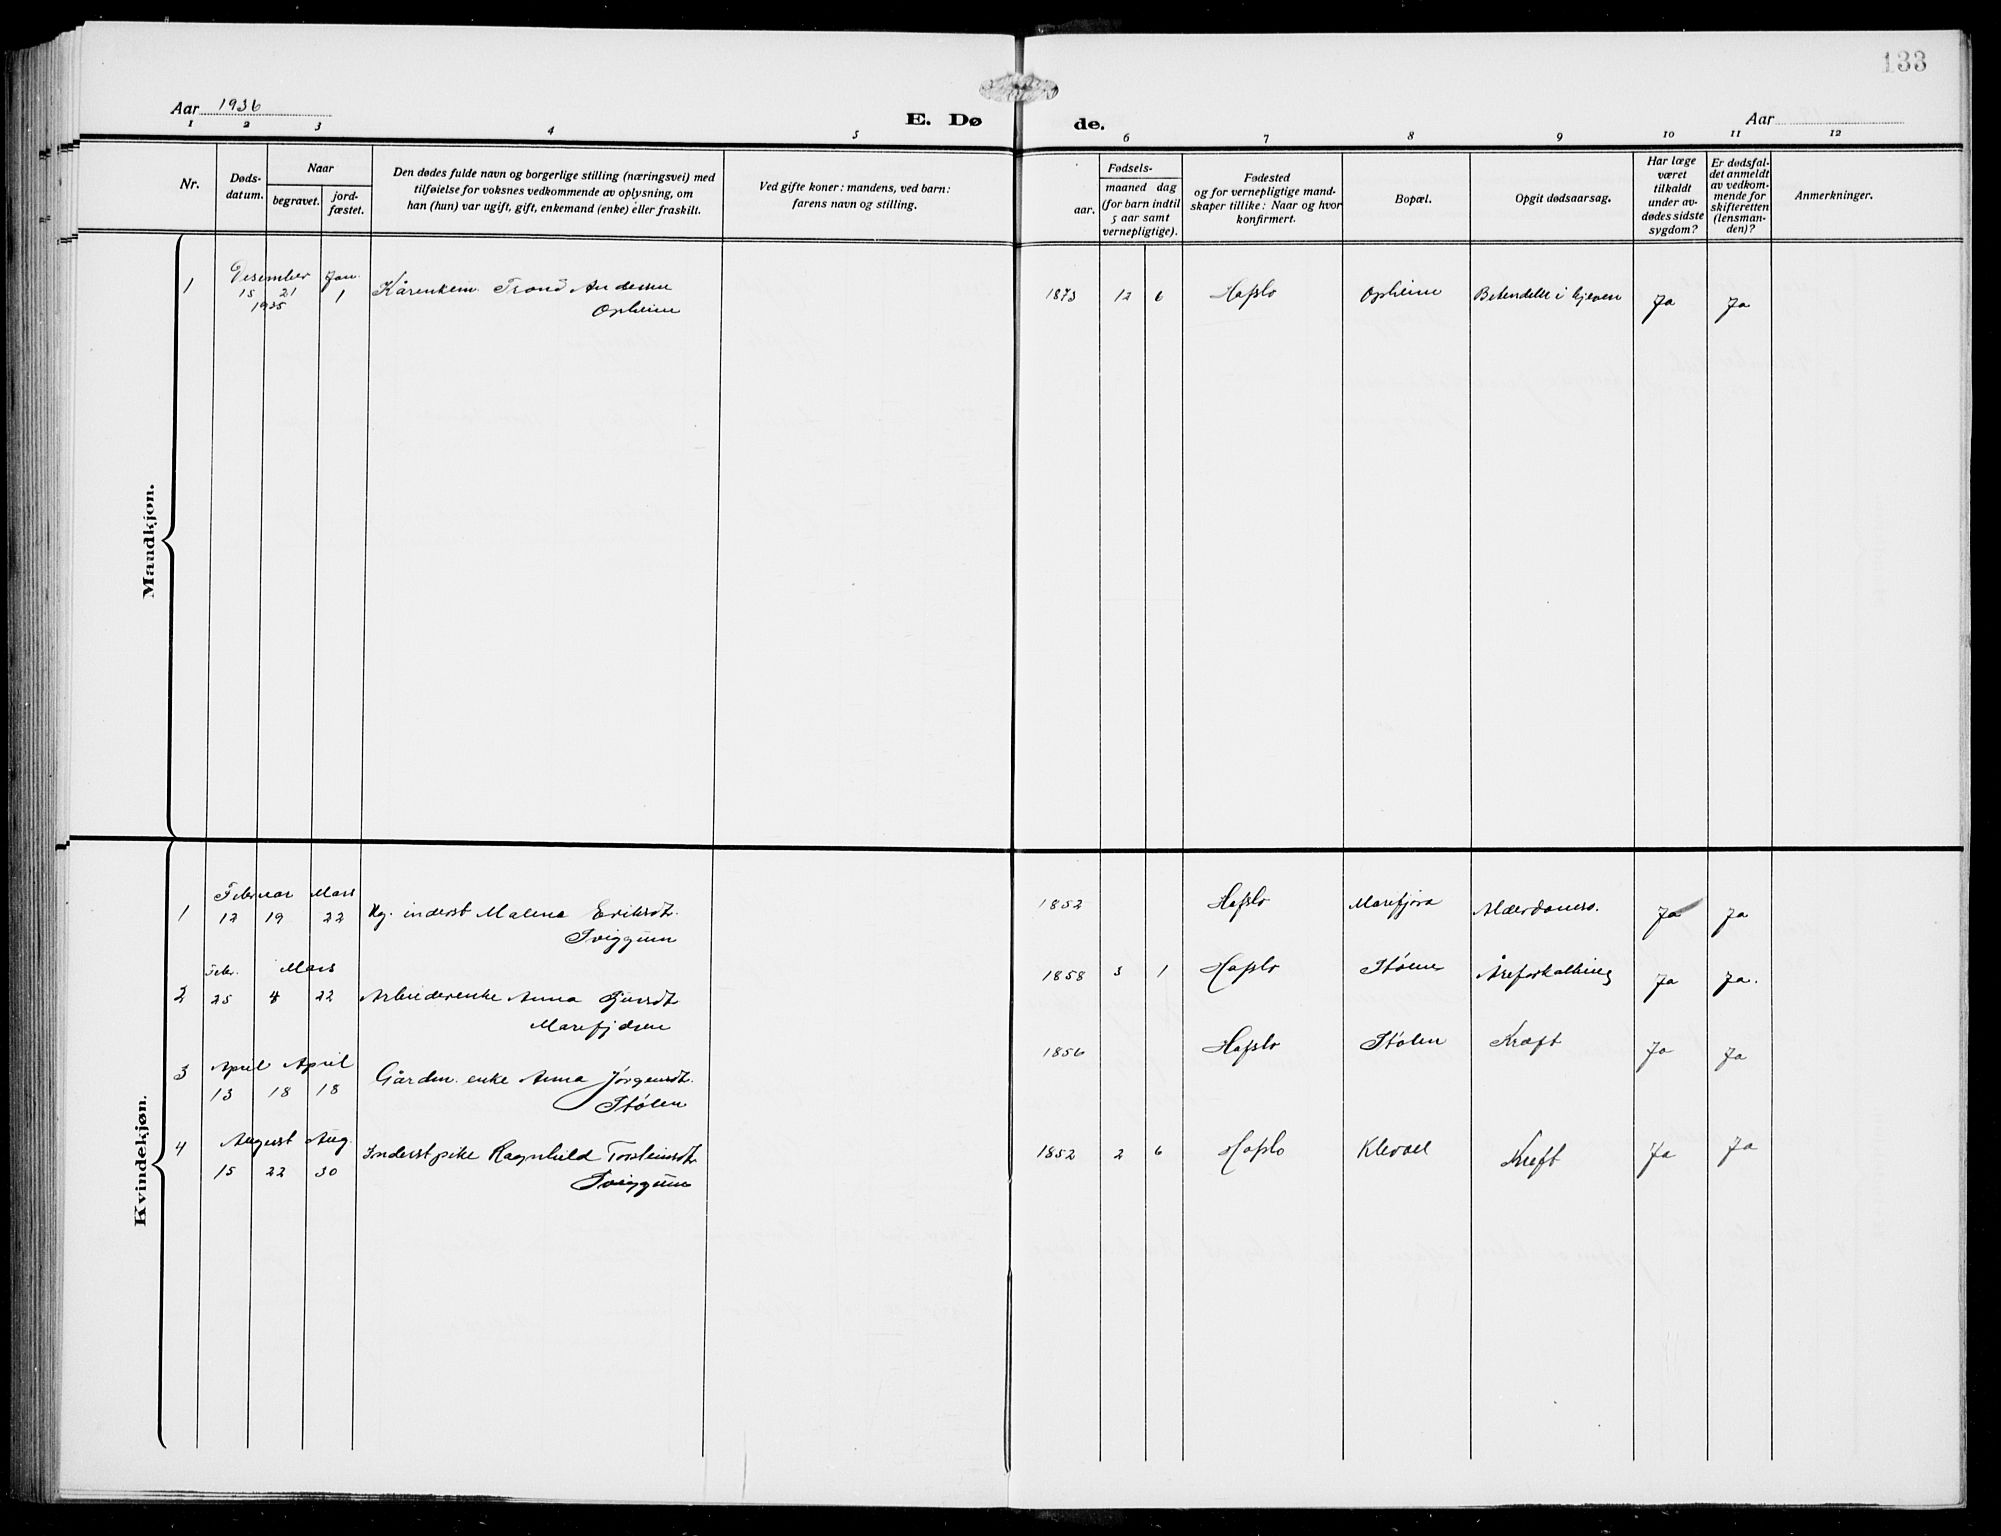 133
Aar 1936
E. Dø
de.
Aar
1 2 3 4 5 6 7 8 9 10 11 12
Nr.
Døds-
datum.
Naar
begravet.
jord-
fæstet.
Den dødes fulde navn og borgerlige stilling (næringsvei) med
tilføielse for voksnes vedkommende av oplysning, om
han (hun) var ugift, gift, enkemand (enke) eller fraskilt.
Ved gifte koner: mandens, ved barn:
farens navn og stilling.
Fødsels-
aar.
maaned dag
(for barn indtil
5 aar samt
vernepligtige).
Fødested
og for vernepligtige mand-
skaper tillike: Naar og hvor
konfirmert.
Bopæl.
Opgit dødsaarsag.
Har læge
været
tilkaldt
under av-
dødes sidste
sygdom?
Er dødsfal-
det anmeldt
av vedkom-
mende for
skifteretten
(lensman-
den)?
Anmerkninger.
Mandkjøn.
Desember Jan.
1 15 21 1 Kårenkem. Trond Andersen 1873 12 6 Hafslo Opheim Betendelse i hjernen Ja Ja
1935 Opheim
Kvindekjøn.
Februar Mars
1 12 19 22 Kg. inderst Malena Eriksdt. 1852 Hafslo Marifjøra Alderdomssv. Ja Ja
Tviggum
Febr. Mars
2 25 4 22 Arbeiderenke Anna Gjersdt. 1858 3 1 Hafslo Stølen Åreforkalkning Ja Ja.
Marifjøren
April April
3 13 18 18 Gårdm. enke Anna Jørgensdt. 1856 Hafslo Stølen Kræft Ja Ja
Stølen
August Aug.
4 15 22 30 Inderst pike Ragnhild Torsteinsdt. 1852 2 6 Hafslo Klevael Kreft Ja Ja
Tviggum